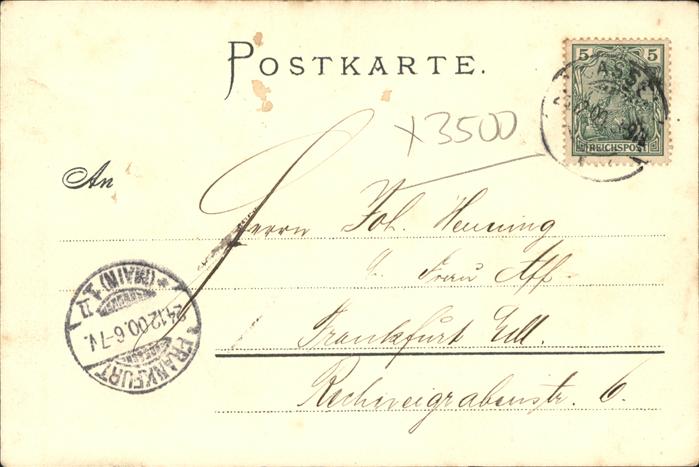 POSTKARTE.
5 5
REICHSPOST
x3500
An
Herrn Joh. Henning
Frau
Frankfurt
Rechneigrabenstr. 6.
FRANKFURT
*(MAIN)1
24.12.00.6-7V.